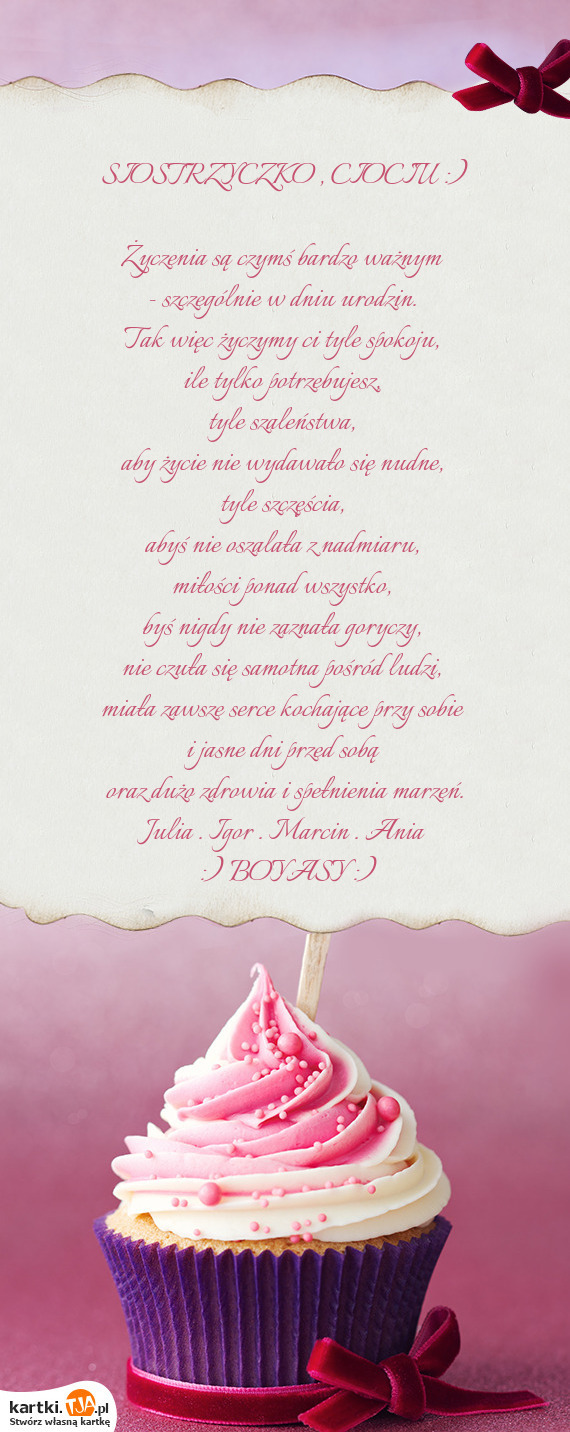 SIOSTRZYCZKO , CIOCIU :)
Życzenia są czymś bardzo ważnym
- szczególnie w dniu urodzin.
Tak więc życzymy ci tyle spokoju,
ile tylko potrzebujesz,
tyle szaleństwa,
aby życie nie wydawało się nudne,
tyle szczęścia,
abyś nie oszalała z nadmiaru,
miłości ponad wszystko,
byś nigdy nie zaznała goryczy,
nie czuła się samotna pośród ludzi,
miała zawsze serce kochające przy sobie
i jasne dni przed sobą
oraz dużo zdrowia i spełnienia marzeń.
Julia . Igor . Marcin . Ania
:) BOYASY :)
kartki.TJA.pl
Stwórz własną kartkę